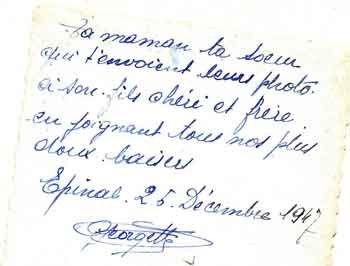 Ta maman ta soeur
qui t'envoient leurs photo
à son fils chéri et frère
en joignant tous nos plus
doux baisers
Epinal. 25. Décembre 1947
Georgette